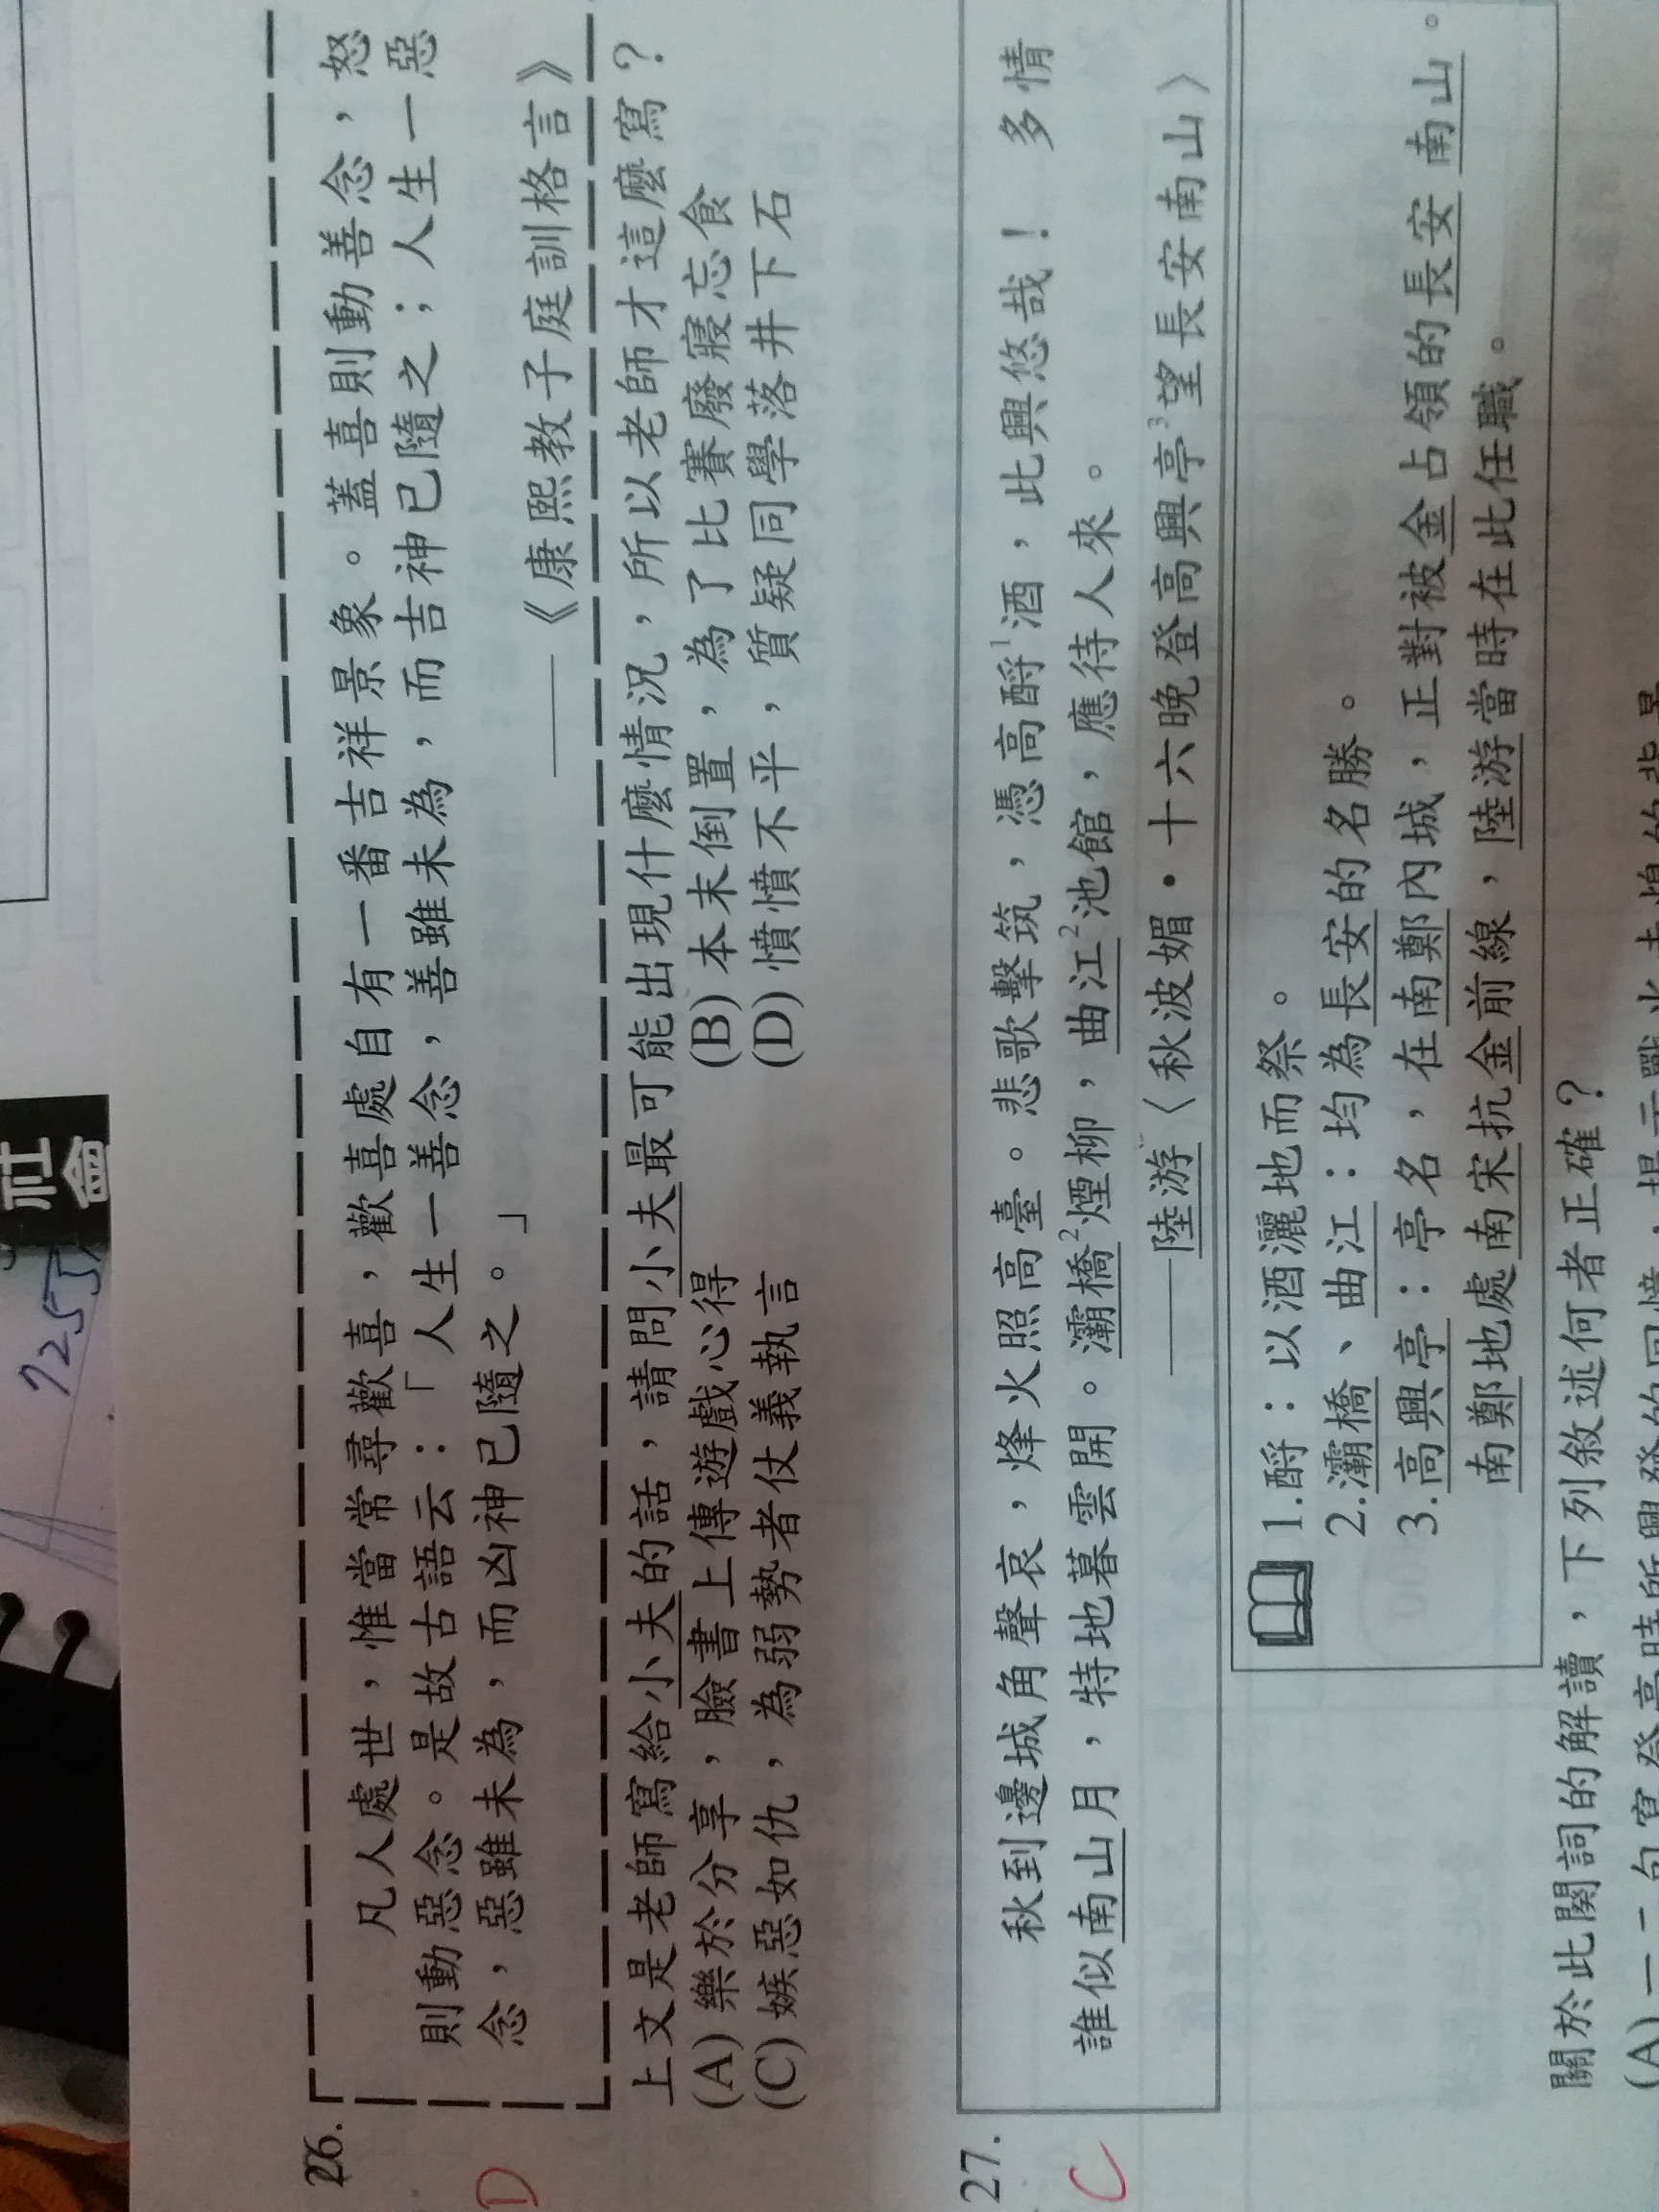 社會
7255
26.
凡人處世，惟當常尋歡喜，歡喜處自有一番吉祥景象。蓋喜則動善念，怒
則動惡念。是故古語云：「人生一善念，善雖未為，而吉神已隨之；人生一惡
念，惡雖未為，而凶神已隨之。」
——《康熙教子庭訓格言》
D
上文是老師寫給小夫的話，請問小夫最可能出現什麼情況，所以老師才這麼寫？
(A)樂於分享，臉書上傳遊戲心得 (B)本末倒置，為了比賽廢寢忘食
(C)嫉惡如仇，為弱勢者仗義執言 (D)憤憤不平，質疑同學落井下石
27.
秋到邊城角聲哀，烽火照高臺。悲歌擊筑，憑高酹1酒，此興悠哉！ 多情
誰似南山月，特地暮雲開。灞橋2煙柳，曲江2池館，應待人來。
——陸游〈秋波媚·十六晚登高興亭3望長安南山〉
C
1.酹：以酒灑地而祭。
2.灞橋、曲江：均為長安的名勝。
3.高興亭：亭名，在南鄭內城，正對被金占領的長安南山。
南鄭地處南宋抗金前線，陸游當時在此任職。
關於此闋詞的解讀，下列敘述何者正確？